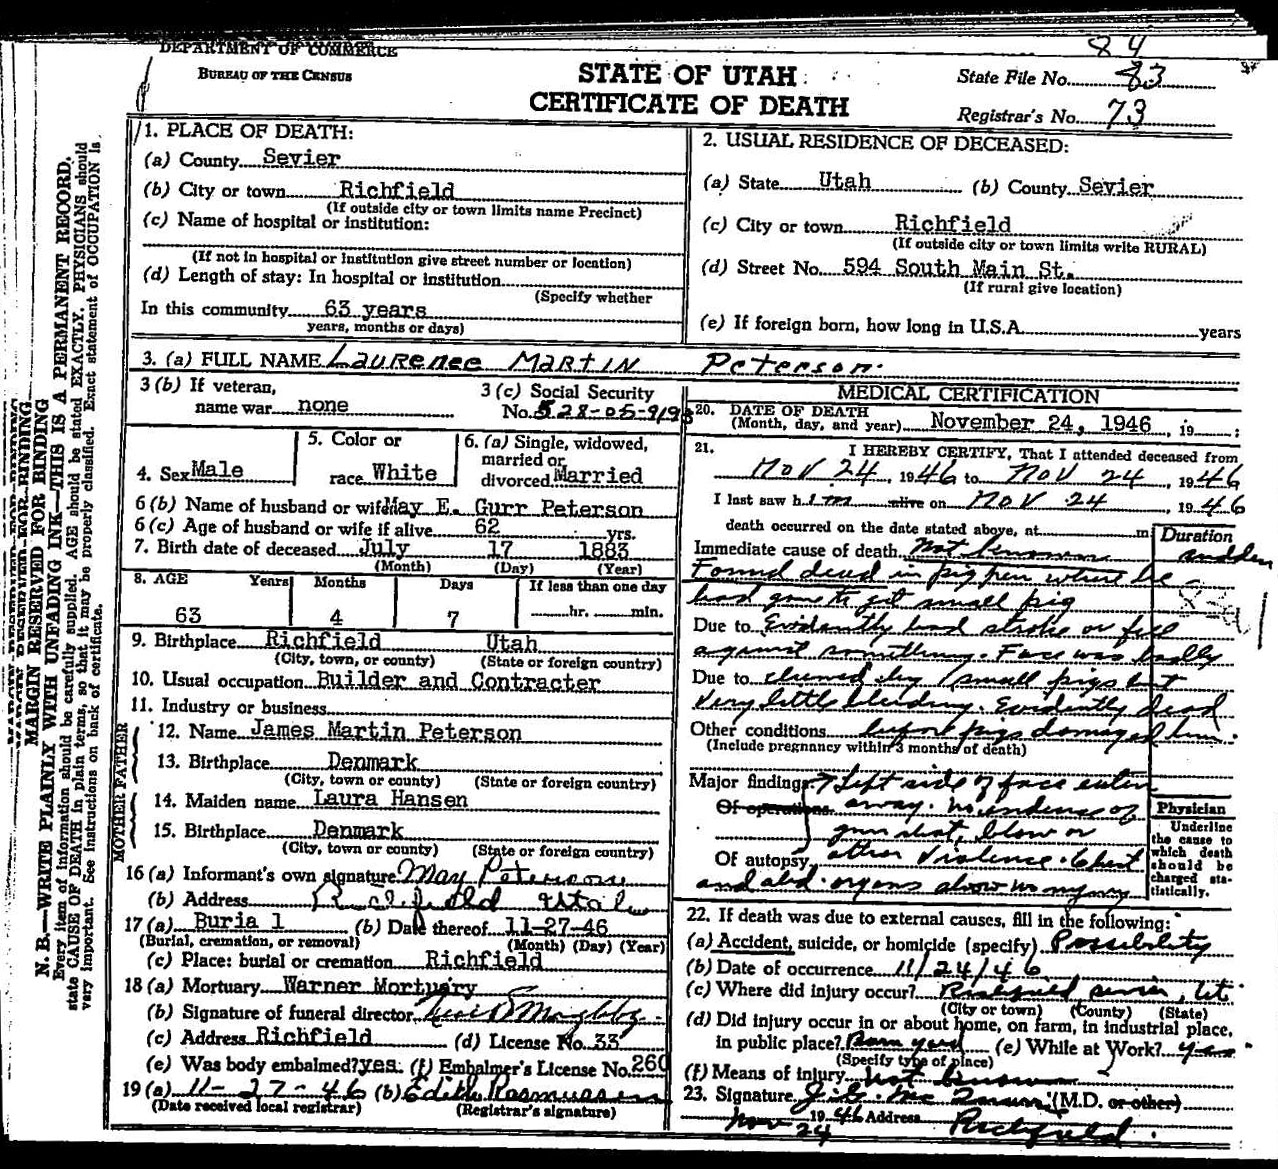 84
DEPARTMENT OF COMMERCE
BUREAU OF THE CENSUS
STATE OF UTAH
CERTIFICATE OF DEATH
State File No. 83
Registrar's No. 73
N. B.—WRITE PLAINLY WITH UNFADING INK—THIS IS A PERMANENT RECORD.
MARGIN RESERVED FOR BINDING
Every item of information should be carefully supplied. AGE should be stated EXACTLY. PHYSICIANS should
state CAUSE OF DEATH in plain terms, so that it may be properly classified. Exact statement of OCCUPATION is
very important. See instructions on back of certificate.
1. PLACE OF DEATH:
(a) County Sevier
(b) City or town Richfield
(If outside city or town limits name Precinct)
(c) Name of hospital or institution:
(If not in hospital or institution give street number or location)
(d) Length of stay: In hospital or institution
(Specify whether
In this community 63 years
years, months or days)
2. USUAL RESIDENCE OF DECEASED:
(a) State Utah (b) County Sevier
(c) City or town Richfield
(If outside city or town limits write RURAL)
(d) Street No. 594 South Main St.
(If rural give location)
(e) If foreign born, how long in U.S.A. years
3. (a) FULL NAME Laurence Martin Peterson.
3 (b) If veteran,
name war none
3 (c) Social Security
No. 528-05-9193
4. Sex Male
5. Color or
race White
6. (a) Single, widowed,
married or
divorced Married
6 (b) Name of husband or wife May E. Gurr Peterson
6 (c) Age of husband or wife if alive 62 yrs.
7. Birth date of deceased July 17 1883
(Month) (Day) (Year)
8. AGE Years Months Days If less than one day
63 4 7 hr. min.
9. Birthplace Richfield Utah
(City, town, or county) (State or foreign country)
10. Usual occupation Builder and Contracter
11. Industry or business
FATHER
12. Name James Martin Peterson
13. Birthplace Denmark
(City, town or county) (State or foreign country)
MOTHER
14. Maiden name Laura Hansen
15. Birthplace Denmark
(City, town or county) (State or foreign country)
16 (a) Informant's own signature May Peterson
(b) Address Richfield Utah
17 (a) Burial (b) Date thereof 11-27-46
(Burial, cremation, or removal) (Month) (Day) (Year)
(c) Place: burial or cremation Richfield
18 (a) Mortuary Warner Mortuary
(b) Signature of funeral director
(c) Address Richfield (d) License No. 33
(e) Was body embalmed? yes. (f) Embalmer's License No. 260
19 (a) 11-27-46 (b) Edith Rasmussen
(Date received local registrar) (Registrar's signature)
MEDICAL CERTIFICATION
20. DATE OF DEATH
(Month, day, and year) November 24, 1946, 19 ;
21. I HEREBY CERTIFY, That I attended deceased from
Nov 24, 1946 to Nov 24, 1946
I last saw him alive on Nov 24, 1946
death occurred on the date stated above, at m
Duration
Immediate cause of death not known sudden
Found dead in pig pen where he
had gone to get small pig
Due to Evidently had stroke or fell
against something. Face was badly
Due to chewed by small pigs but
very little bleeding. Evidently dead
Other conditions before pigs damaged him.
(Include pregnancy within 3 months of death)
Major findings: Left side of face eaten
Of operations away. No evidence of
gun shot, blow or
Of autopsy other violence. Chest
and abd. organs show no injury
Physician
Underline
the cause to
which death
should be
charged sta-
tistically.
22. If death was due to external causes, fill in the following:
(a) Accident, suicide, or homicide (specify) Possibility
(b) Date of occurrence 11/24/46
(c) Where did injury occur? Richfield Sevier, Ut
(City or town) (County) (State)
(d) Did injury occur in or about home, on farm, in industrial place,
in public place? Barn yard (e) While at Work? yes
(Specify type of place)
(f) Means of injury not known
23. Signature (M.D. or other)
Nov 24 1946 Address Richfield.